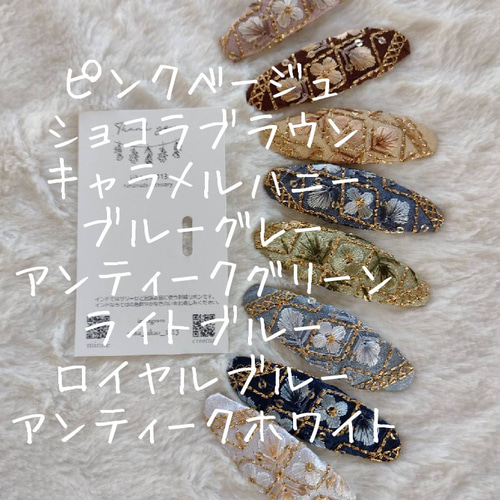 ピンクベージュ
ショコラブラウン
キャラメルハニー
ブルーグレー
アンティークグリーン
ライトブルー
ロイヤルブルー
アンティークホワイト